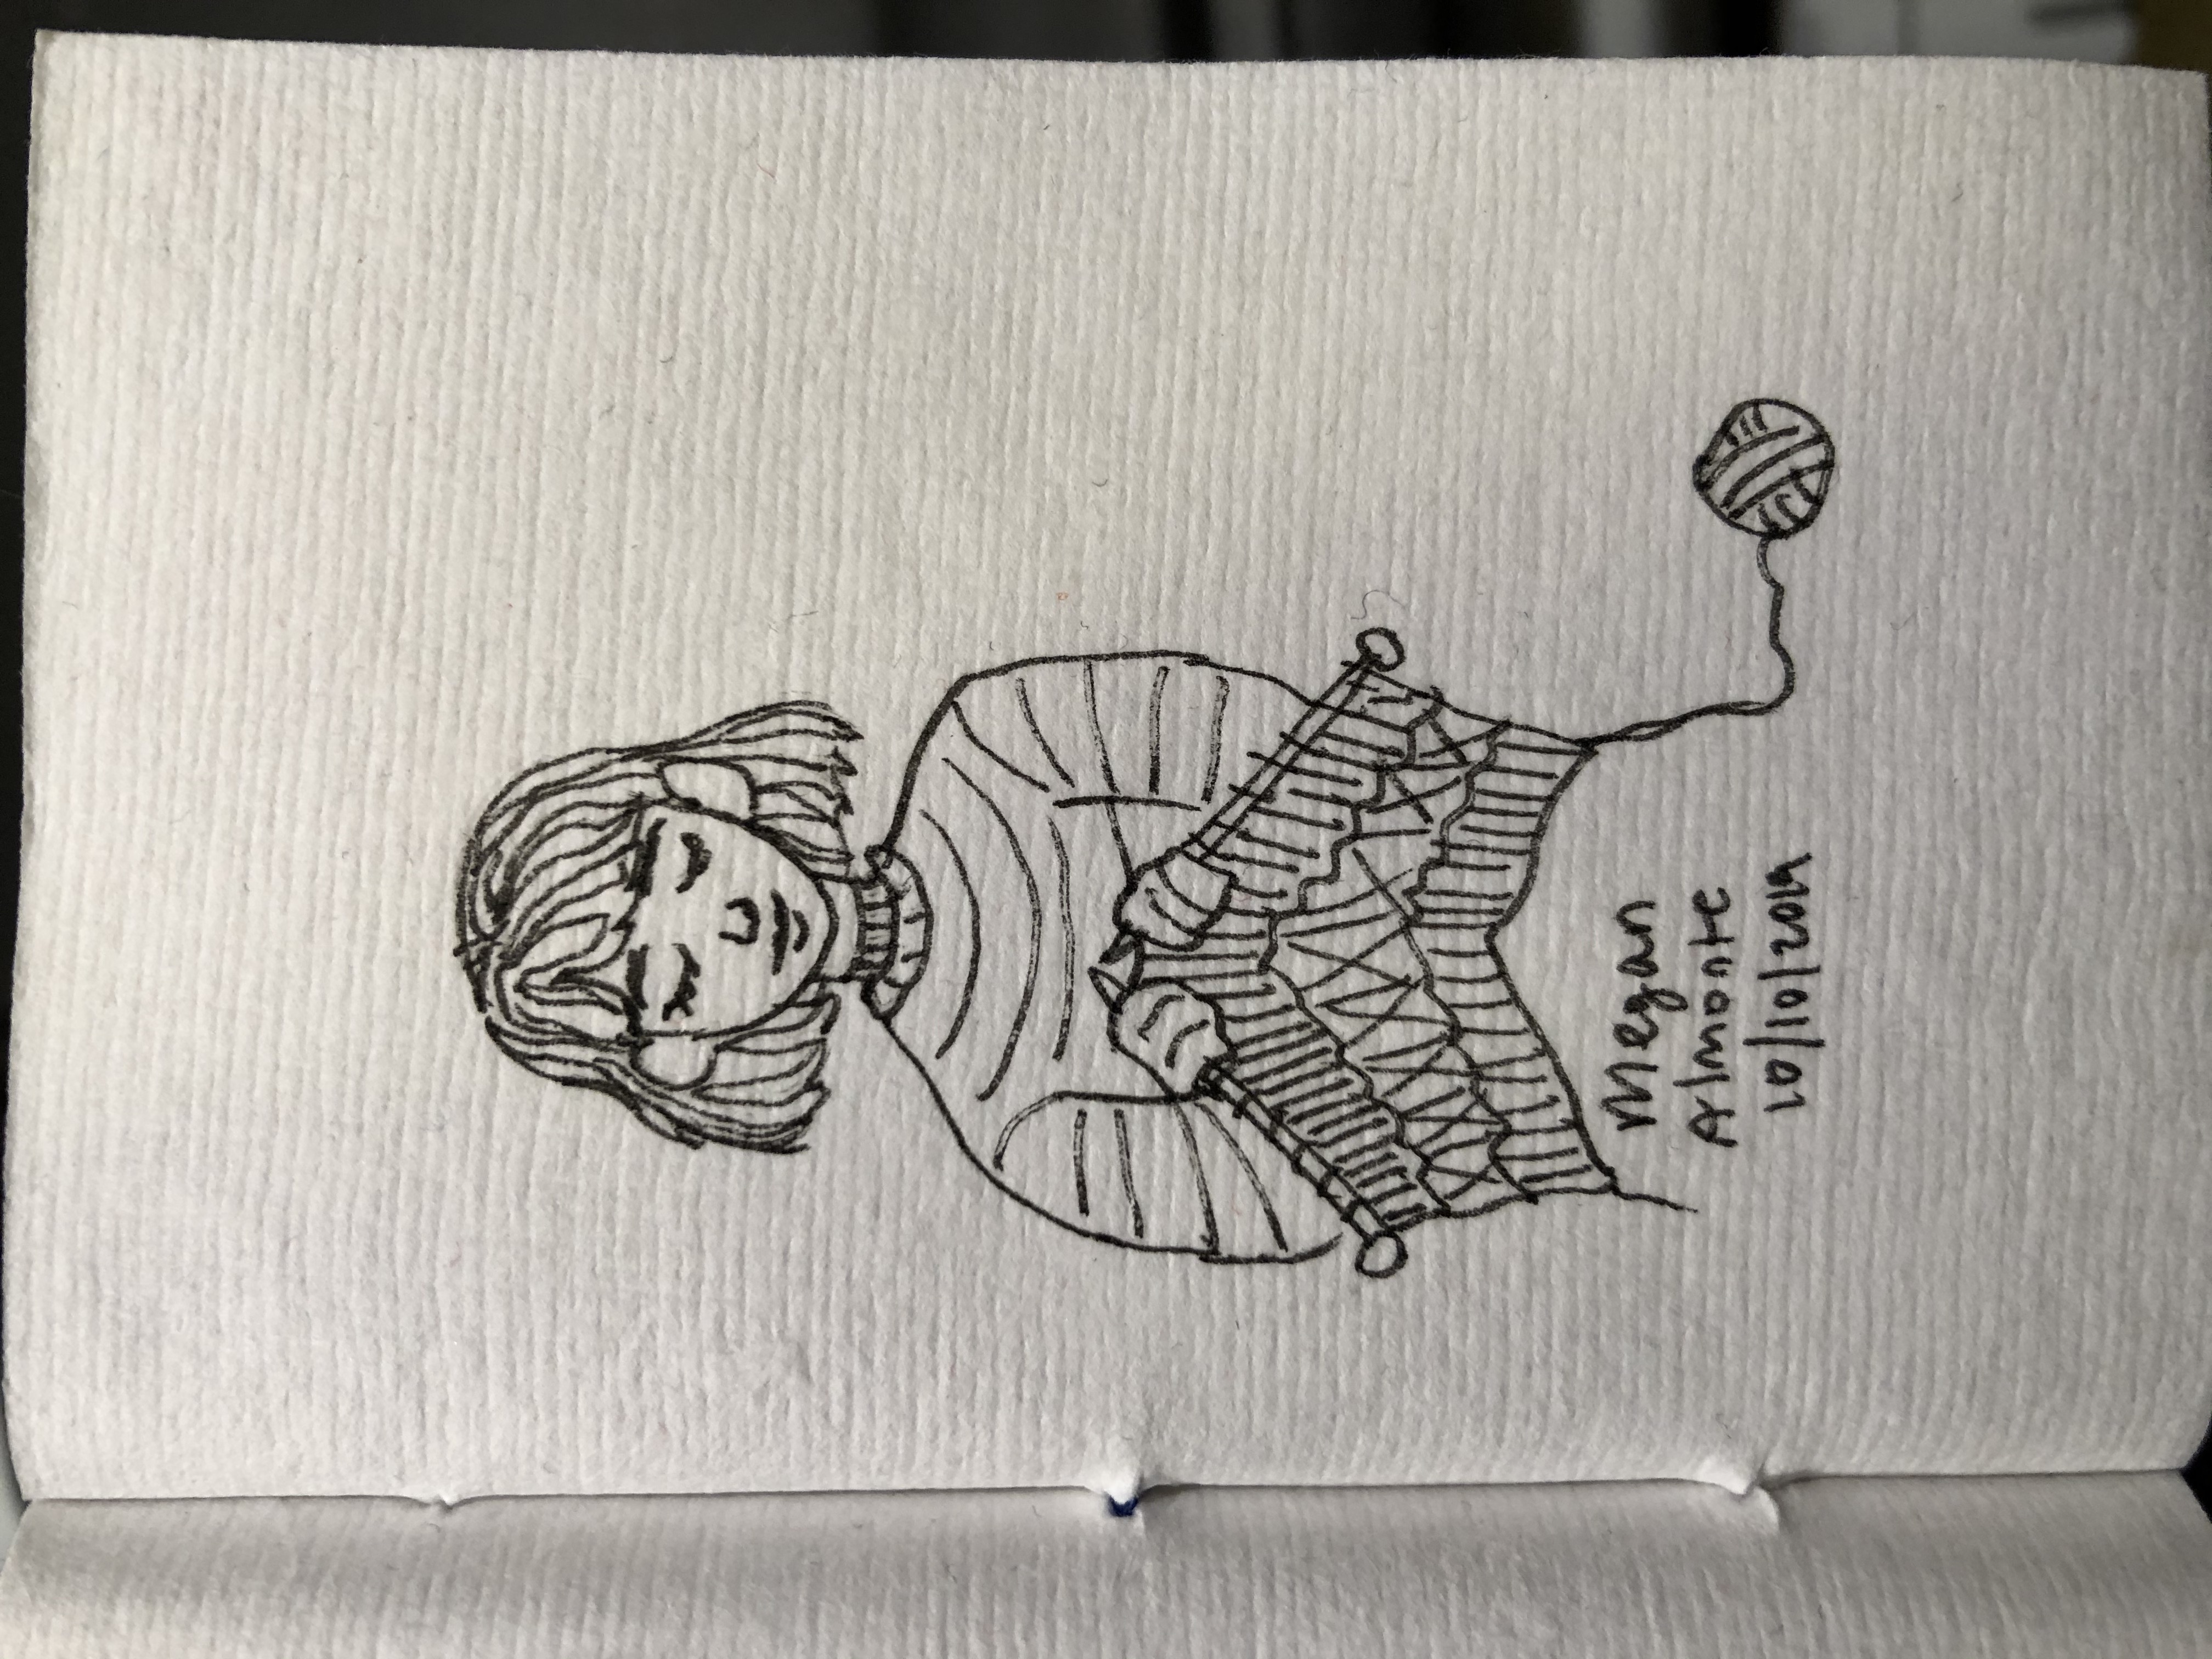 Megan
Almonte
10/10/2019